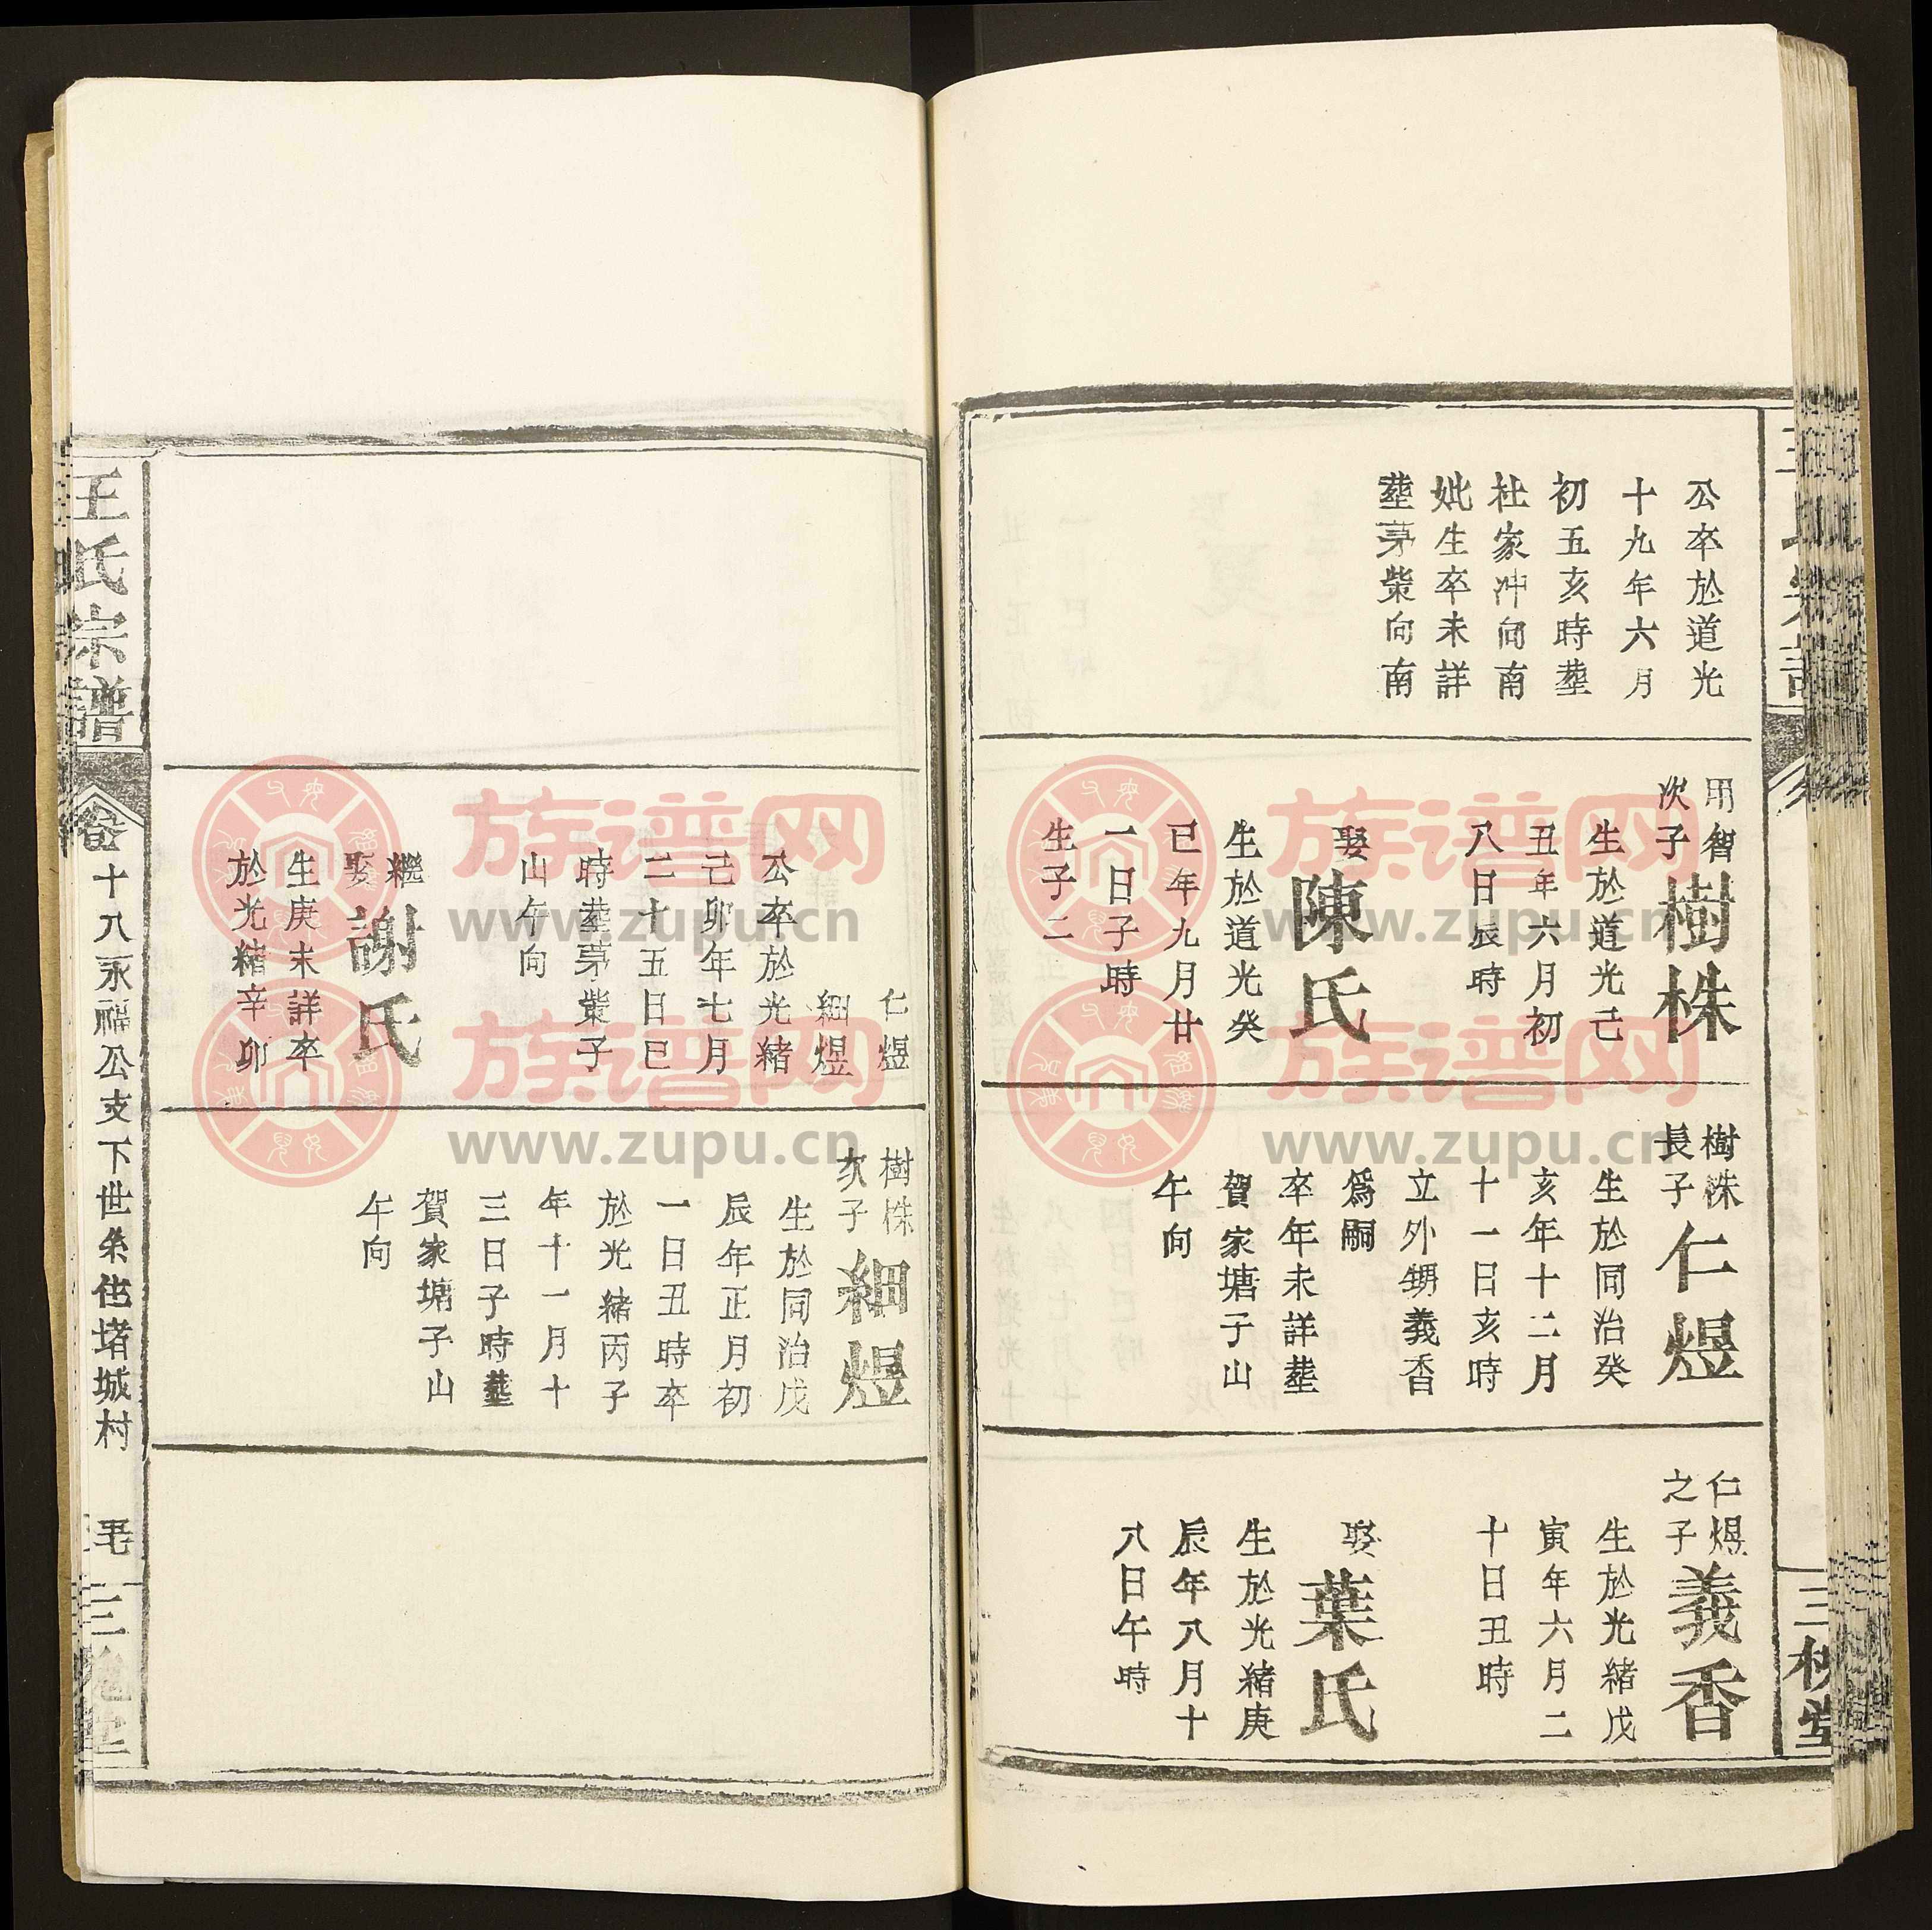 公卒於道光
十九年六月
初五亥時塟
杜家冲向南
妣生卒未詳
塟茅柴向南
用智
次子
樹株
生於道光己
丑年六月初
八日辰時
娶
陳氏
生於道光癸
巳年九月廿
一日子時
生子二
樹株
長子
仁煜
生於同治癸
亥年十二月
十一日亥時
立外甥義香
爲嗣
卒年未詳塟
賀家塘子山
午向
仁煜
之子
義香
生於光緒戊
寅年六月二
十日丑時
娶
葉氏
生於光緒庚
辰年八月十
八日午時
三槐堂
仁煜
細煜
公卒於光緒
己卯年七月
二十五日巳
時塟茅柴子
山午向
繼
娶
謝氏
生庚未詳卒
於光緒辛卯
樹株
次子
細煜
生於同治戊
辰年正月初
一日丑時卒
於光緒丙子
年十一月十
三日子時塟
賀家塘子山
午向
王氏宗譜
十八永福公支下世系住堵城村
三槐堂
族谱网
www.zupu.cn
族谱网
www.zupu.cn
族谱网
www.zupu.cn
族谱网
www.zupu.cn